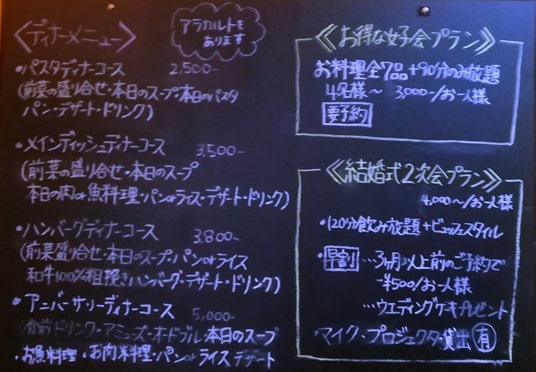 ≪ディナーメニュー≫
アラカルトも
あります
・パスタディナーコース 2,500-
(前菜の盛り合せ・本日のスープ・本日のパスタ
パン・デザート・ドリンク)
・メインディッシュディナーコース 3,500-
(前菜の盛り合せ・本日のスープ
本日の肉or魚料理・パンorライス・デザート・ドリンク)
・ハンバーグディナーコース 3,800-
(前菜盛り合せ・本日のスープ・パンorライス
和牛100%粗挽きハンバーグ・デザート・ドリンク)
・アニバーサリーディナーコース 5,000-
食前ドリンク・アミューズ・オードブル・本日のスープ
・お魚料理・お肉料理・パンorライス デザート
≪お得な女子会プラン≫
お料理全7品+90分のみ放題
4名様〜 3,000-/お一人様
要予約
≪結婚式2次会プラン≫
4,000〜/お一人様
・120分飲み放題+ビュッフェスタイル
・早割…3ヶ月以上前のご予約で
-¥500/お一人様
…ウエディングケーキプレゼント
・マイク、プロジェクター貸出有